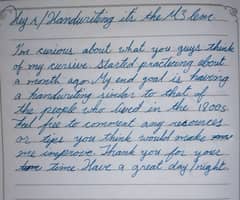 Hey r/Handwriting it's the M3 line
I'm curious about what you guys think
of my cursive. Started practicing about
a month ago. My end goal is having
a handwriting similar to that of
the people who lived in the 1800s.
Feel free to comment any resources
or tips you think would make
me improve. Thank you for your
time Have a great day/night.